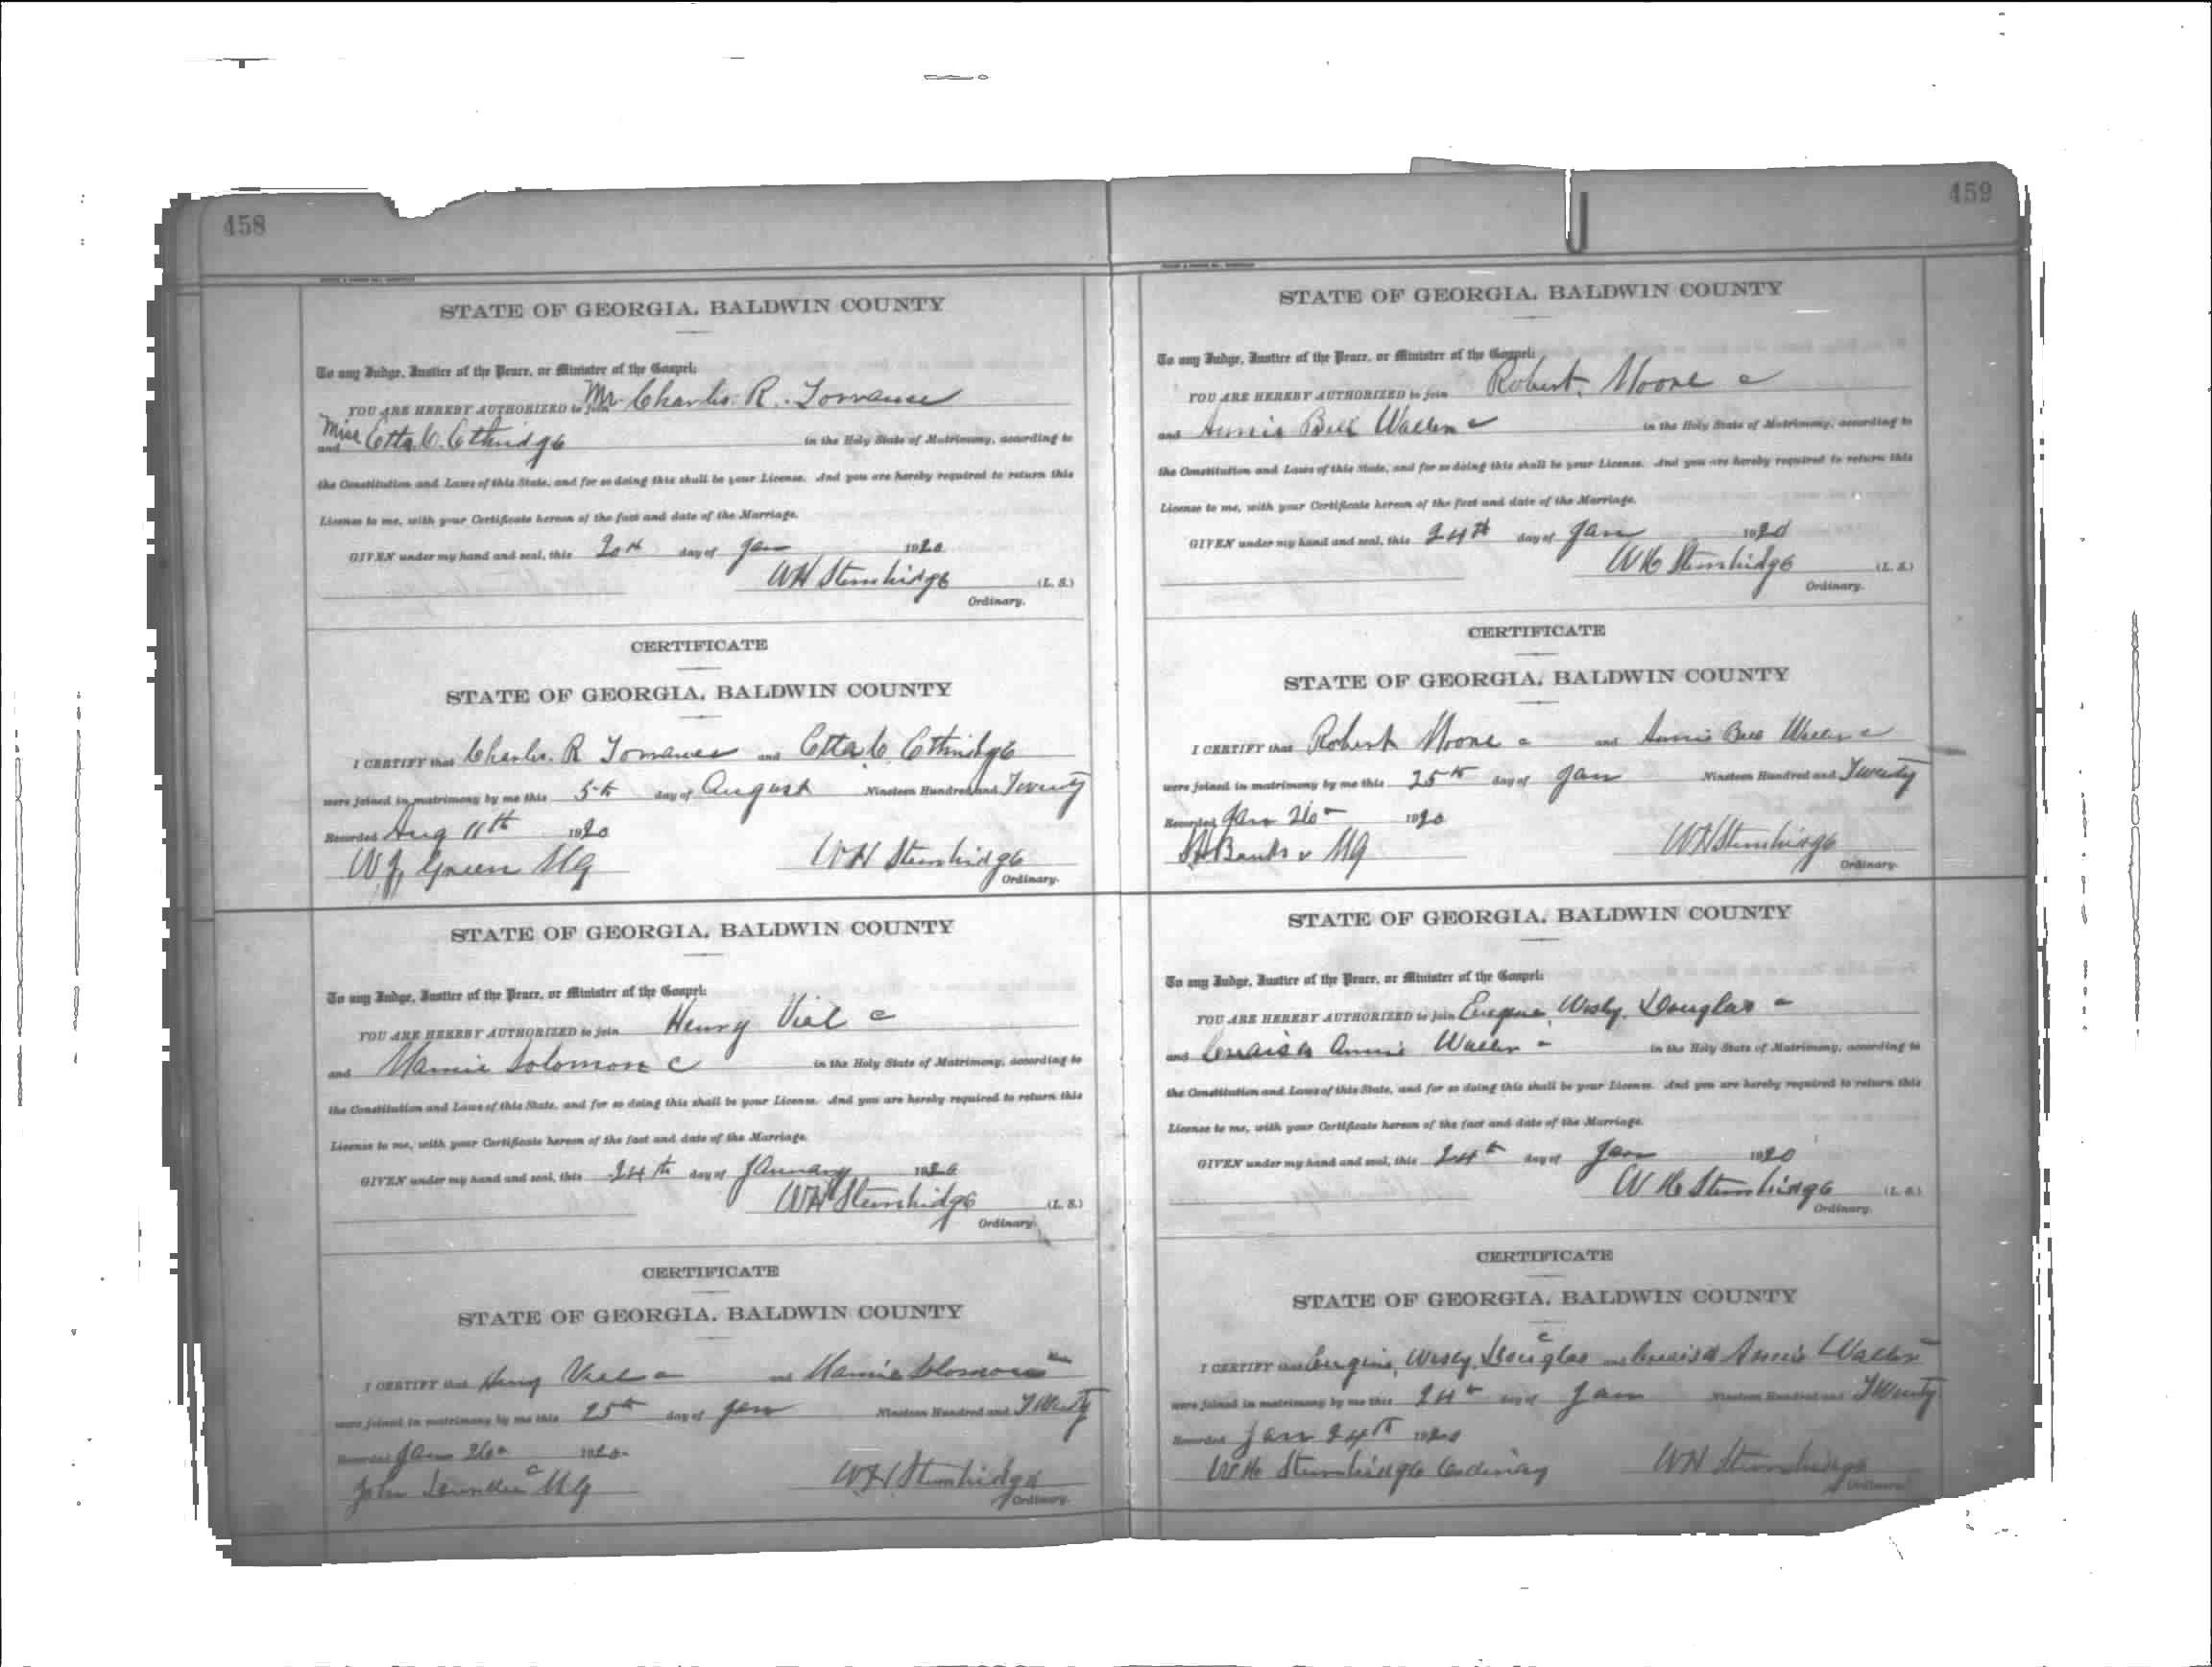 458
STATE OF GEORGIA. BALDWIN COUNTY
To any Judge, Justice of the Peace, or Minister of the Gospel:
YOU ARE HEREBY AUTHORIZED to join Mr Charles. R. Torrance
and Miss Etta. C. Ethridge in the Holy State of Matrimony, acording to
the Constitution and Laws of this State, and for so doing this shall be your License. And you are hereby required to return this
License to me, with your Certificate hereon of the fact and date of the Marriage.
GIVEN under my hand and seal, this 20th day of Jan 1920
WH Stembridge (L. S.)
Ordinary.
CERTIFICATE
STATE OF GEORGIA. BALDWIN COUNTY
I CERTIFY that Charles. R Torrance and Etta. C. Ethridge
were joined in matrimony by me this 5th day of August Nineteen Hundred and Twenty
Recorded Aug 11th 1920
W. J. Green MG WH Stembridge
Ordinary.
STATE OF GEORGIA. BALDWIN COUNTY
To any Judge, Justice of the Peace, or Minister of the Gospel:
YOU ARE HEREBY AUTHORIZED to join Henry Vial c
and Mamie Solomon c in the Holy State of Matrimony, acording to
the Constitution and Laws of this State, and for so doing this shall be your License. And you are hereby required to return this
License to me, with your Certificate hereon of the fact and date of the Marriage.
GIVEN under my hand and seal, this 24th day of January 1920
WH Stembridge (L. S.)
Ordinary.
CERTIFICATE
STATE OF GEORGIA. BALDWIN COUNTY
I CERTIFY that Henry Vial c and Mamie Solomon c
were joined in matrimony by me this 25th day of Jan Nineteen Hundred and Twenty
Recorded Jan 26 1920
John c MG WH Stembridge
Ordinary.
459
STATE OF GEORGIA. BALDWIN COUNTY
To any Judge, Justice of the Peace, or Minister of the Gospel:
YOU ARE HEREBY AUTHORIZED to join Robert. Moore c
and Annie Bell Waller c in the Holy State of Matrimony, acording to
the Constitution and Laws of this State, and for so doing this shall be your License. And you are hereby required to return this
License to me, with your Certificate hereon of the fact and date of the Marriage.
GIVEN under my hand and seal, this 24th day of Jan 1920
WH Stembridge (L. S.)
Ordinary.
CERTIFICATE
STATE OF GEORGIA. BALDWIN COUNTY
I CERTIFY that Robert Moore c and Annie Bell Waller c
were joined in matrimony by me this 25th day of Jan Nineteen Hundred and Twenty
Recorded Jan 26 1920
Banks MG WH Stembridge
Ordinary.
STATE OF GEORGIA. BALDWIN COUNTY
To any Judge, Justice of the Peace, or Minister of the Gospel:
YOU ARE HEREBY AUTHORIZED to join Eugene, Wesley, Douglas c
and Annie Waller c in the Holy State of Matrimony, acording to
the Constitution and Laws of this State, and for so doing this shall be your License. And you are hereby required to return this
License to me, with your Certificate hereon of the fact and date of the Marriage.
GIVEN under my hand and seal, this 24th day of Jan 1920
WH Stembridge (L. S.)
Ordinary.
CERTIFICATE
STATE OF GEORGIA. BALDWIN COUNTY
I CERTIFY that Eugene, Wesley, Douglas c and Annie Waller
were joined in matrimony by me this 24th day of Jan Nineteen Hundred and Twenty
Recorded Jan 24th 1920
WH Stembridge Ordinary WH Stembridge
Ordinary.